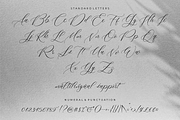 STANDARD LETTERS
Aa Bb Cc Dd Ee Ff Gg Hh
Ii Jj Kk Ll Mm Nn Oo Pp Qq
Rr Ss Tt Uu Vv Ww
Xx Yy Zz
multilingual support
NUMERAL & PUNCTUATION